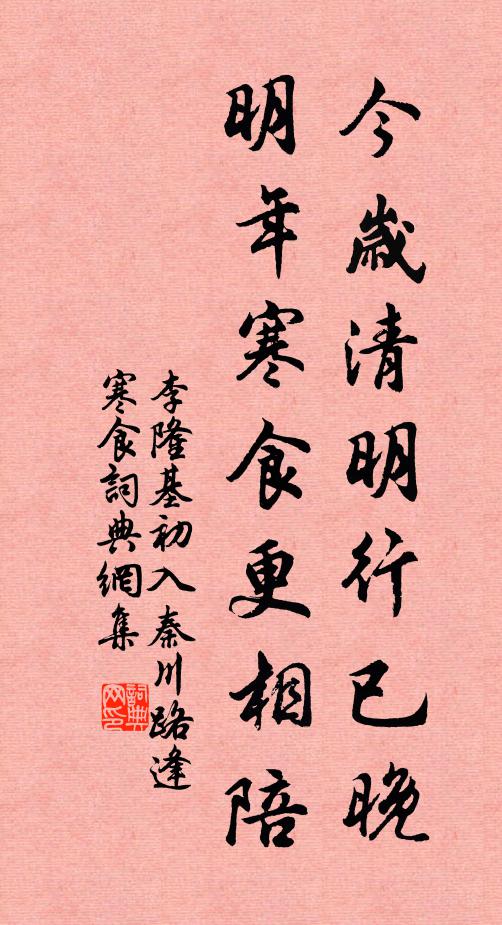 今歲清明行已晚
明年寒食更相陪
李隆基初入秦川路逢
寒食詞典網集
詞典網印